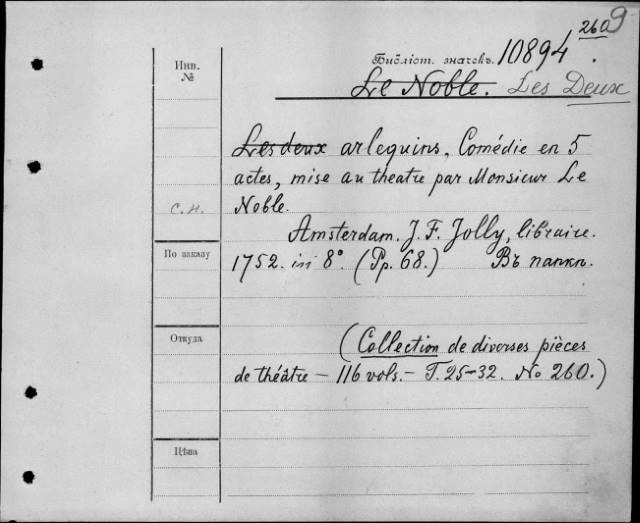 2609
Инв.
№
Библіот. значекъ. 10894.
Le Noble. Les Deux
Les deux arlequins. Comédie en 5
actes, mise au theatre par Monsieur Le
с.н.
Noble.
Amsterdam. J. F. Jolly, libraire.
По заказу
1752. in 8°. (Pp. 68.) Въ папкѣ.
Откуда
(Collection de diverses pièces
de théâtre – 116 vols. – T. 25–32. No 260.)
Цѣна